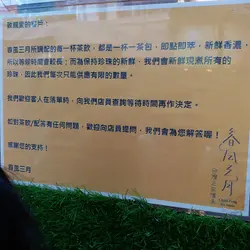 敬親愛的客戶
春風三月所調配的每一杯茶飲，都是一杯一茶包，即點即萃，新鮮香濃，
所以等候時間會較長；而為保持珍珠的新鮮，我們會新鮮現煮所有的
珍珠，因此我們每次只能供應有限的數量。
我們歡迎客人在落單時，向我們店員查詢等待時間再作決定。
如對茶飲/配答有任何問題，歡迎向店員提問，我們會為您解答喔！
感謝您的支持！
春風三月
春風三月